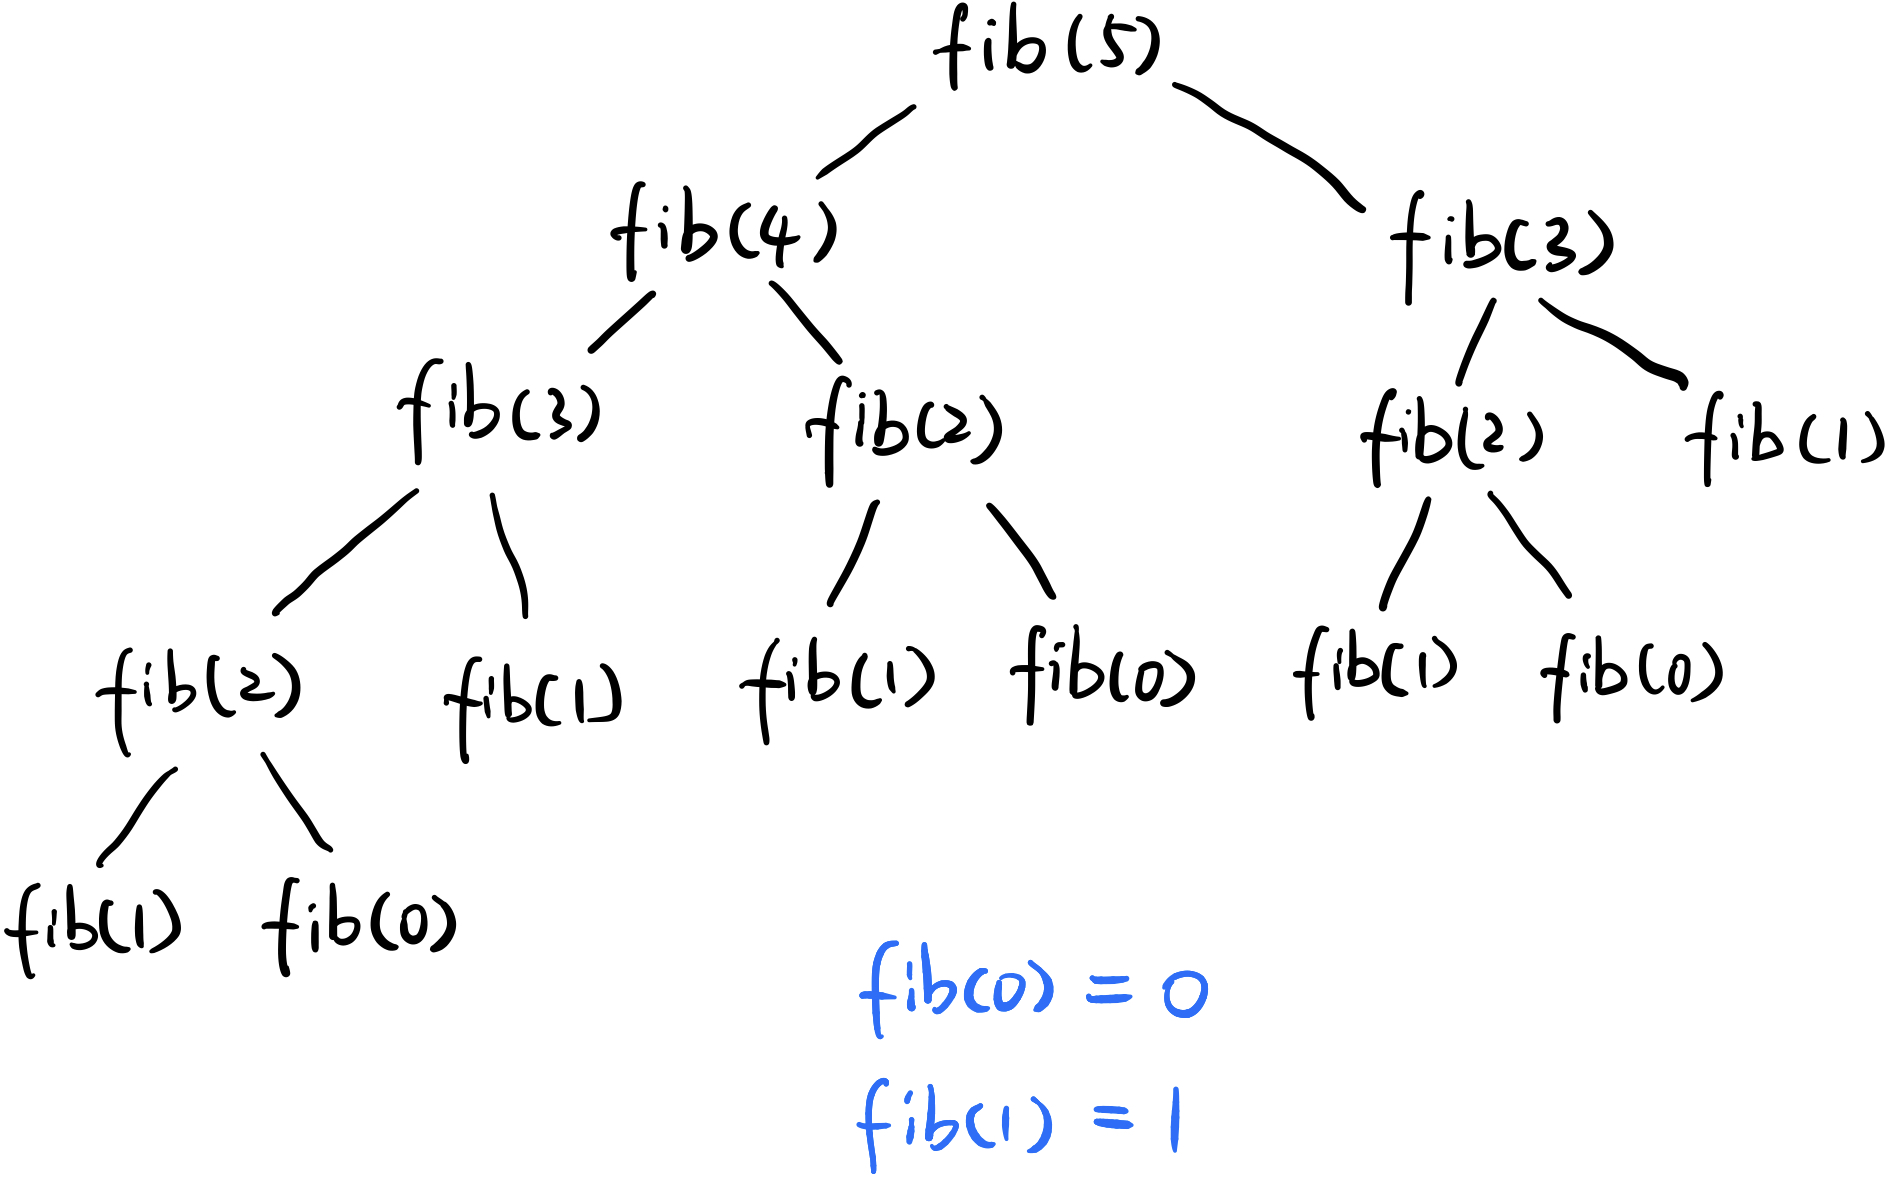 fib(5)
fib(4) fib(3)
fib(3) fib(2) fib(2) fib(1)
fib(2) fib(1) fib(1) fib(0) fib(1) fib(0)
fib(1) fib(0)
fib(0) = 0
fib(1) = 1